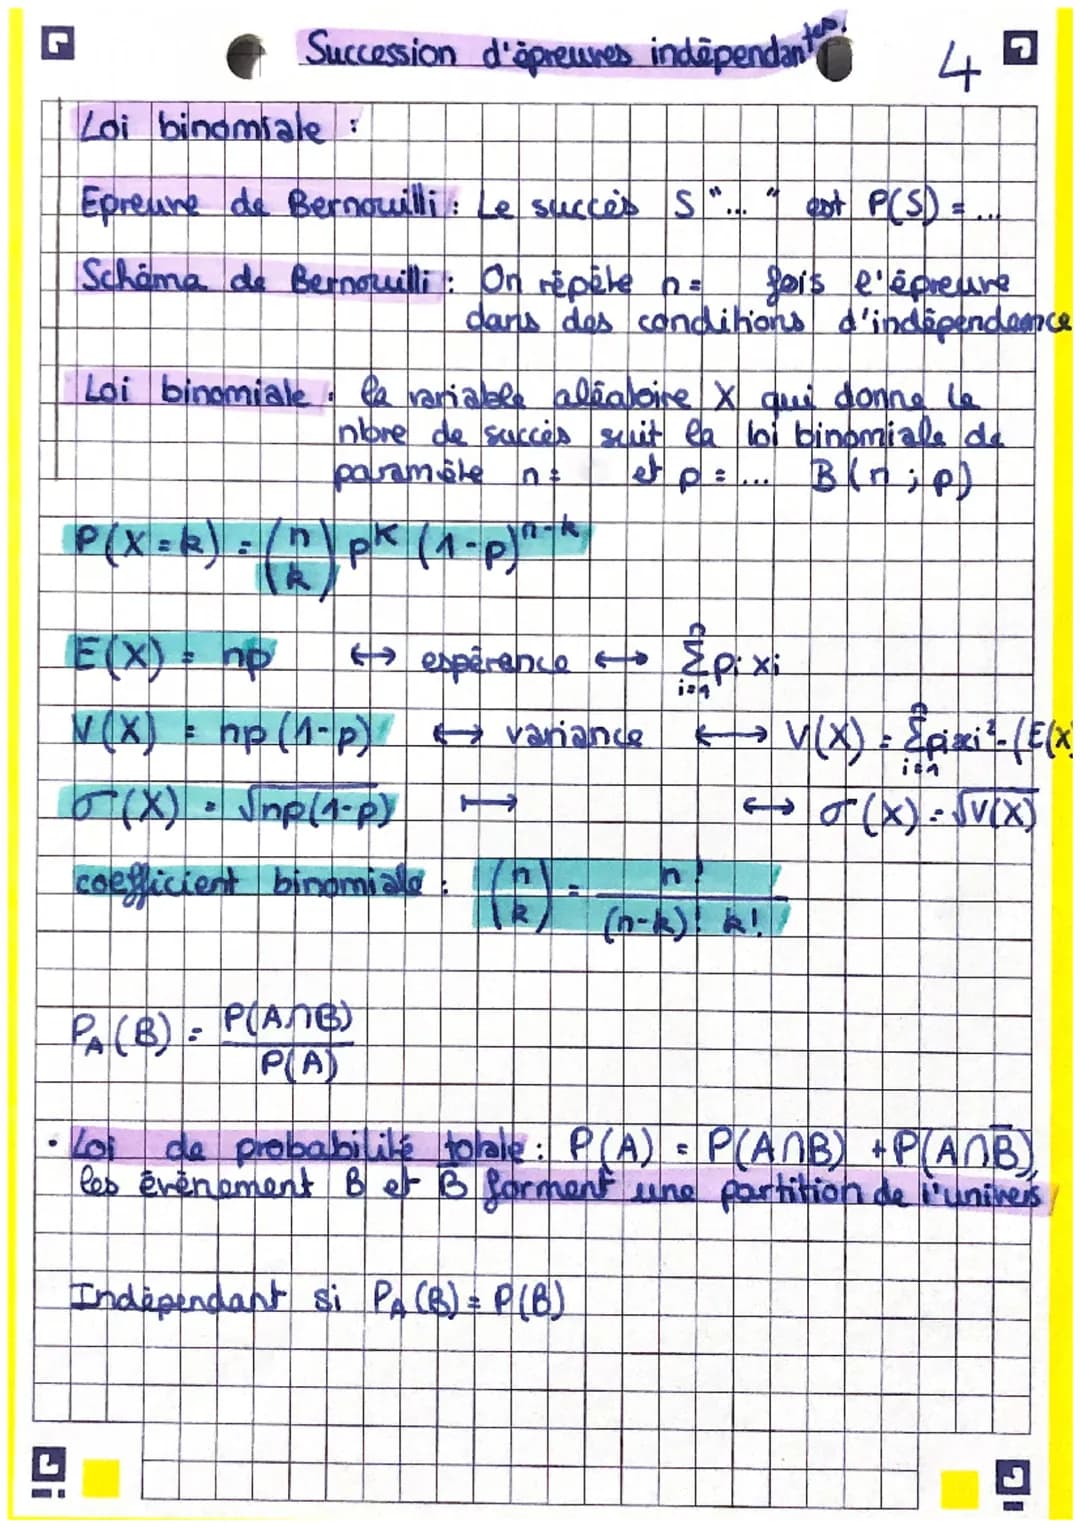 Succession d'épreuves indépendantes.
4
Loi binomiale :
Epreuve de Bernouilli : Le succès S "... " est P(S) = ...
Schéma de Bernouilli : On répète n = fois l'épreuve
dans des conditions d'indépendance
Loi binomiale : la variable aléatoire X qui donne le
nbre de succès suit la loi binomiale de
paramète n = et p = ... B(n ; p)
P(X = k) = (n k) p^k (1-p)^n-k
E(X) = np ↔ espérance ↔ n Σ i=1 pi xi
V(X) = np (1-p) ↔ variance ↔ V(X) = n Σ i=1 pi xi² - (E(X)
σ(X) = √np(1-p) ↦ ↔ σ(X) = √V(X)
coefficient binomiale : (n k) = n! / (n-k)! k!
P_A(B) = P(A∩B) / P(A)
• Loi de probabilité totale : P(A) = P(A∩B) + P(A∩B̅),
les évènement B et B̅ forment une partition de l'univers
Indépendant si P_A(B) = P(B)